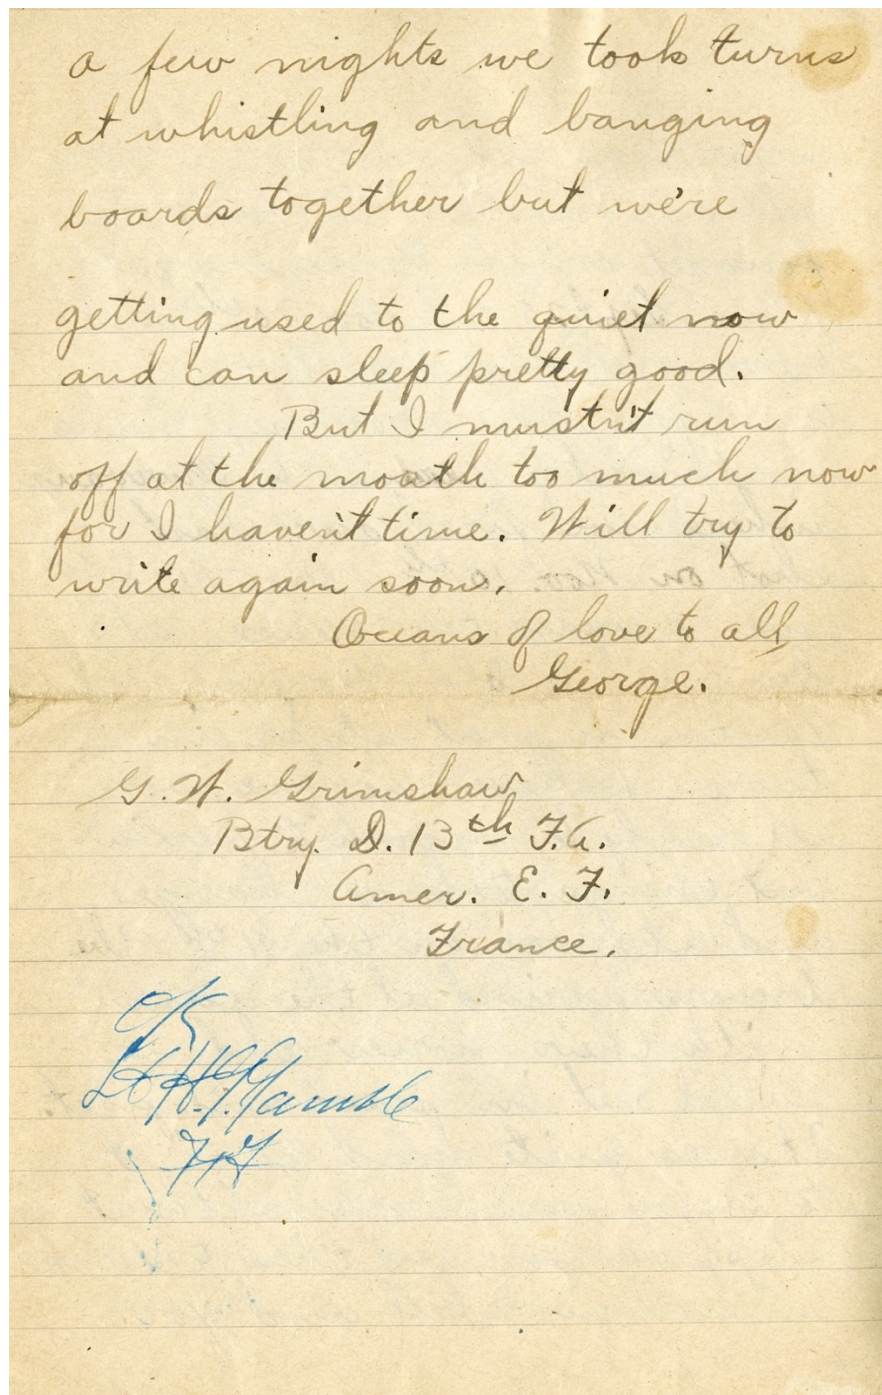 a few nights we took turns
at whistling and banging
boards together but we're
getting used to the quiet now
and can sleep pretty good.
But I mustn't run
off at the moath too much now
for I haven't time. Will try to
write again soon.
Oceans of love to all,
George.
G. W. Grimshaw
Btry. D. 13th F.A.
Amer. E. F.
France.
OK
Lt H. Gamble